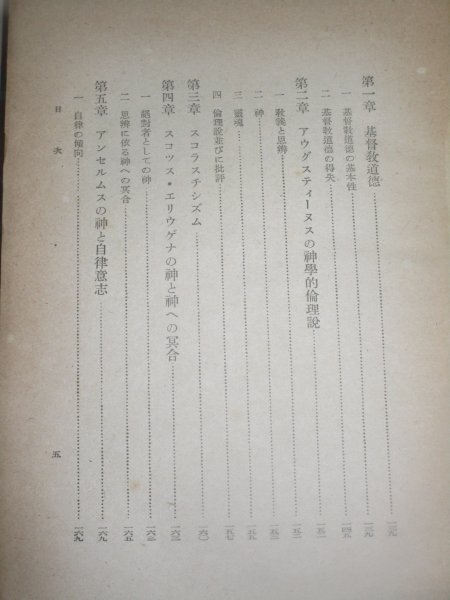 第一章 基督敎道德 一三九
一 基督敎道德の基本性 一三九
二 基督敎道德の得失 一四五
第二章 アウグスティーヌスの神學的倫理說 一五二
一 敎義と思辨 一五二
二 神 一五三
三 靈魂 一五五
四 倫理說並びに批評 一五七
第三章 スコラスチシズム 一六〇
第四章 スコツス・エリウゲナの神と神への冥合 一六三
一 絕對者としての神 一六三
二 思辨に依る神への冥合 一六五
第五章 アンセルムスの神と自律意志 一六九
一 自律の傾向 一六九
目次
五